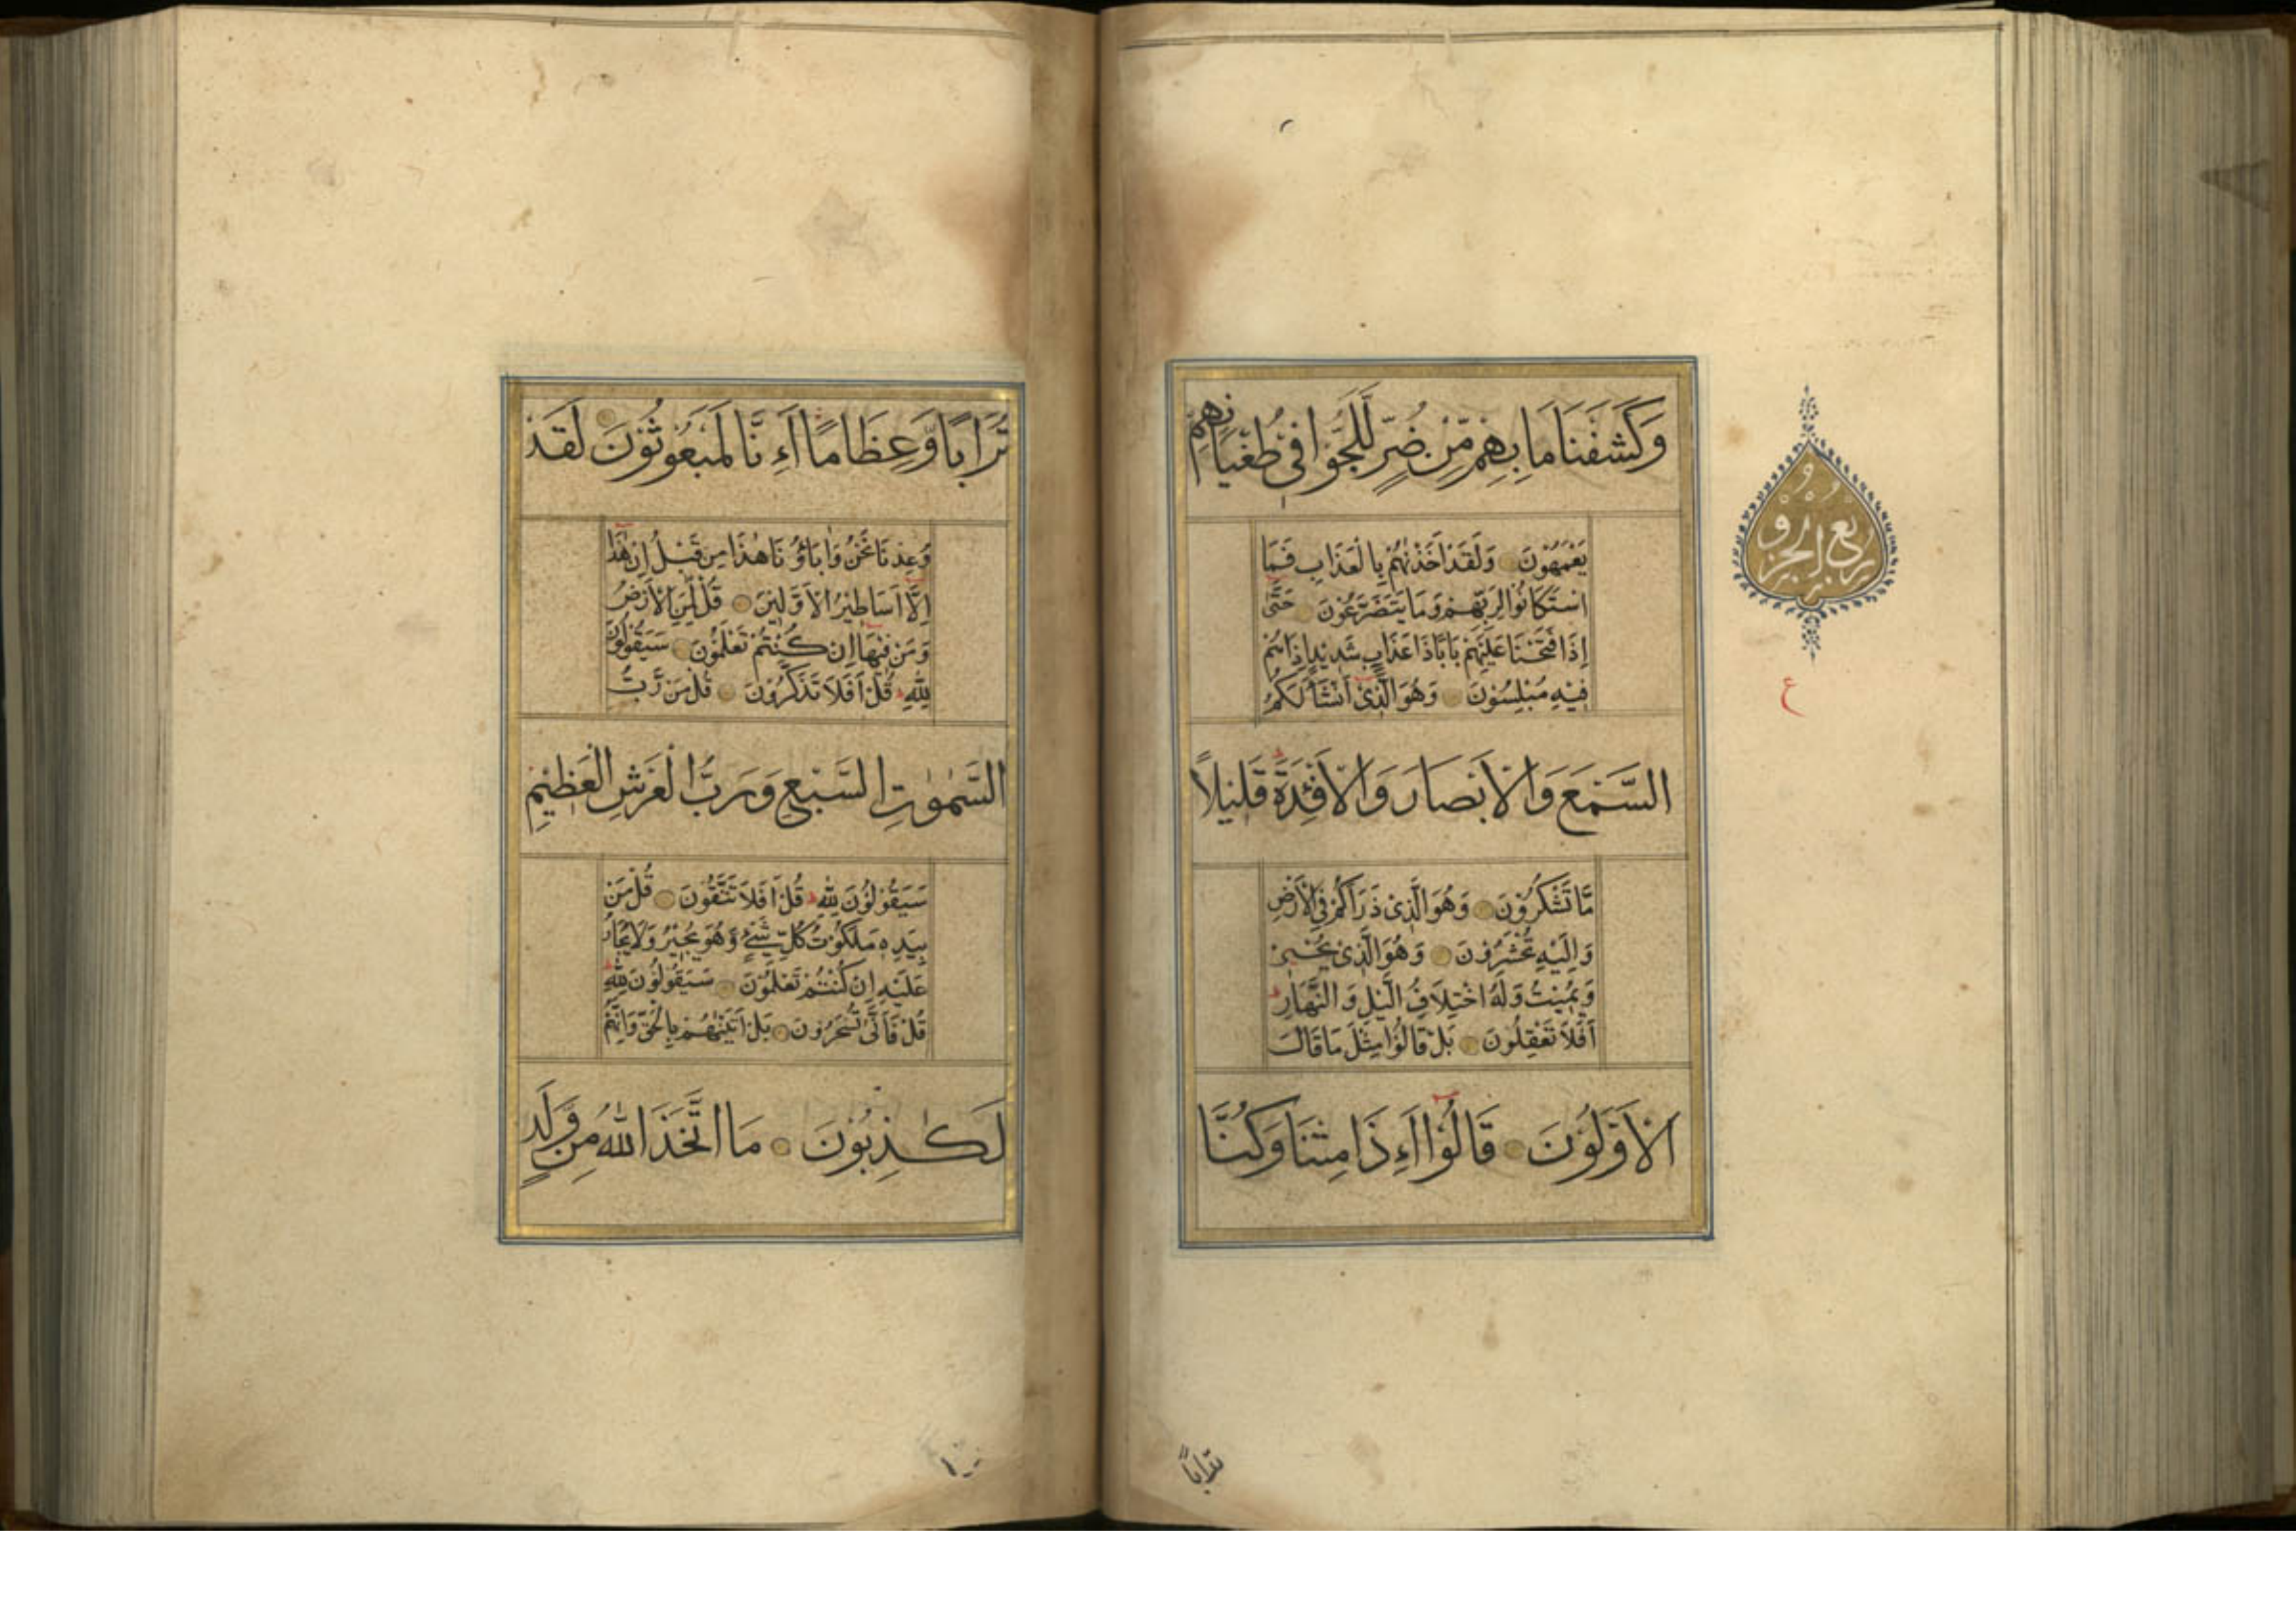 وَكَشَفْنَا مَا بِهِمْ مِّنْ ضُرٍّ لَّلَجُّوْا فِیْ طُغْيَانِهِمْ
يَعْمَهُوْنَ وَلَقَدْ اَخَذْنٰهُمْ بِالْعَذَابِ فَمَا
اسْتَكَانُوْا لِرَبِّهِمْ وَمَا يَتَضَرَّعُوْنَ حَتّٰى
اِذَا فَتَحْنَا عَلَيْهِمْ بَابًا ذَا عَذَابٍ شَدِيْدٍ اِذَا هُمْ
فِيْهِ مُبْلِسُوْنَ وَهُوَ الَّذِیْ اَنْشَاَ لَكُمُ
السَّمْعَ وَالْاَبْصَارَ وَالْاَفْئِدَةَ قَلِيْلًا
مَّا تَشْكُرُوْنَ وَهُوَ الَّذِیْ ذَرَاَكُمْ فِی الْاَرْضِ
وَاِلَيْهِ تُحْشَرُوْنَ وَهُوَ الَّذِیْ يُحْيٖ
وَيُمِيْتُ وَلَهُ اخْتِلَافُ الَّيْلِ وَالنَّهَارِ
اَفَلَا تَعْقِلُوْنَ بَلْ قَالُوْا مِثْلَ مَا قَالَ
الْاَوَّلُوْنَ قَالُوْا ءَاِذَا مِتْنَا وَكُنَّا
ربع الجزو
ع
تراباً
تُرَابًا وَّعِظَامًا ءَاِنَّا لَمَبْعُوْثُوْنَ لَقَدْ
وُعِدْنَا نَحْنُ وَاٰبَاؤُنَا هٰذَا مِنْ قَبْلُ اِنْ هٰذَا
اِلَّا اَسَاطِيْرُ الْاَوَّلِيْنَ قُلْ لِّمَنِ الْاَرْضُ
وَمَنْ فِيْهَا اِنْ كُنْتُمْ تَعْلَمُوْنَ سَيَقُوْلُوْنَ
لِلّٰهِ قُلْ اَفَلَا تَذَكَّرُوْنَ قُلْ مَنْ رَّبُّ
السَّمٰوٰتِ السَّبْعِ وَرَبُّ الْعَرْشِ الْعَظِيْمِ
سَيَقُوْلُوْنَ لِلّٰهِ قُلْ اَفَلَا تَتَّقُوْنَ قُلْ مَنْ
بِيَدِهٖ مَلَكُوْتُ كُلِّ شَیْءٍ وَّهُوَ يُجِيْرُ وَلَا يُجَارُ
عَلَيْهِ اِنْ كُنْتُمْ تَعْلَمُوْنَ سَيَقُوْلُوْنَ لِلّٰهِ
قُلْ فَاَنّٰى تُسْحَرُوْنَ بَلْ اَتَيْنٰهُمْ بِالْحَقِّ وَاِنَّهُمْ
لَكٰذِبُوْنَ مَا اتَّخَذَ اللّٰهُ مِنْ وَّلَدٍ